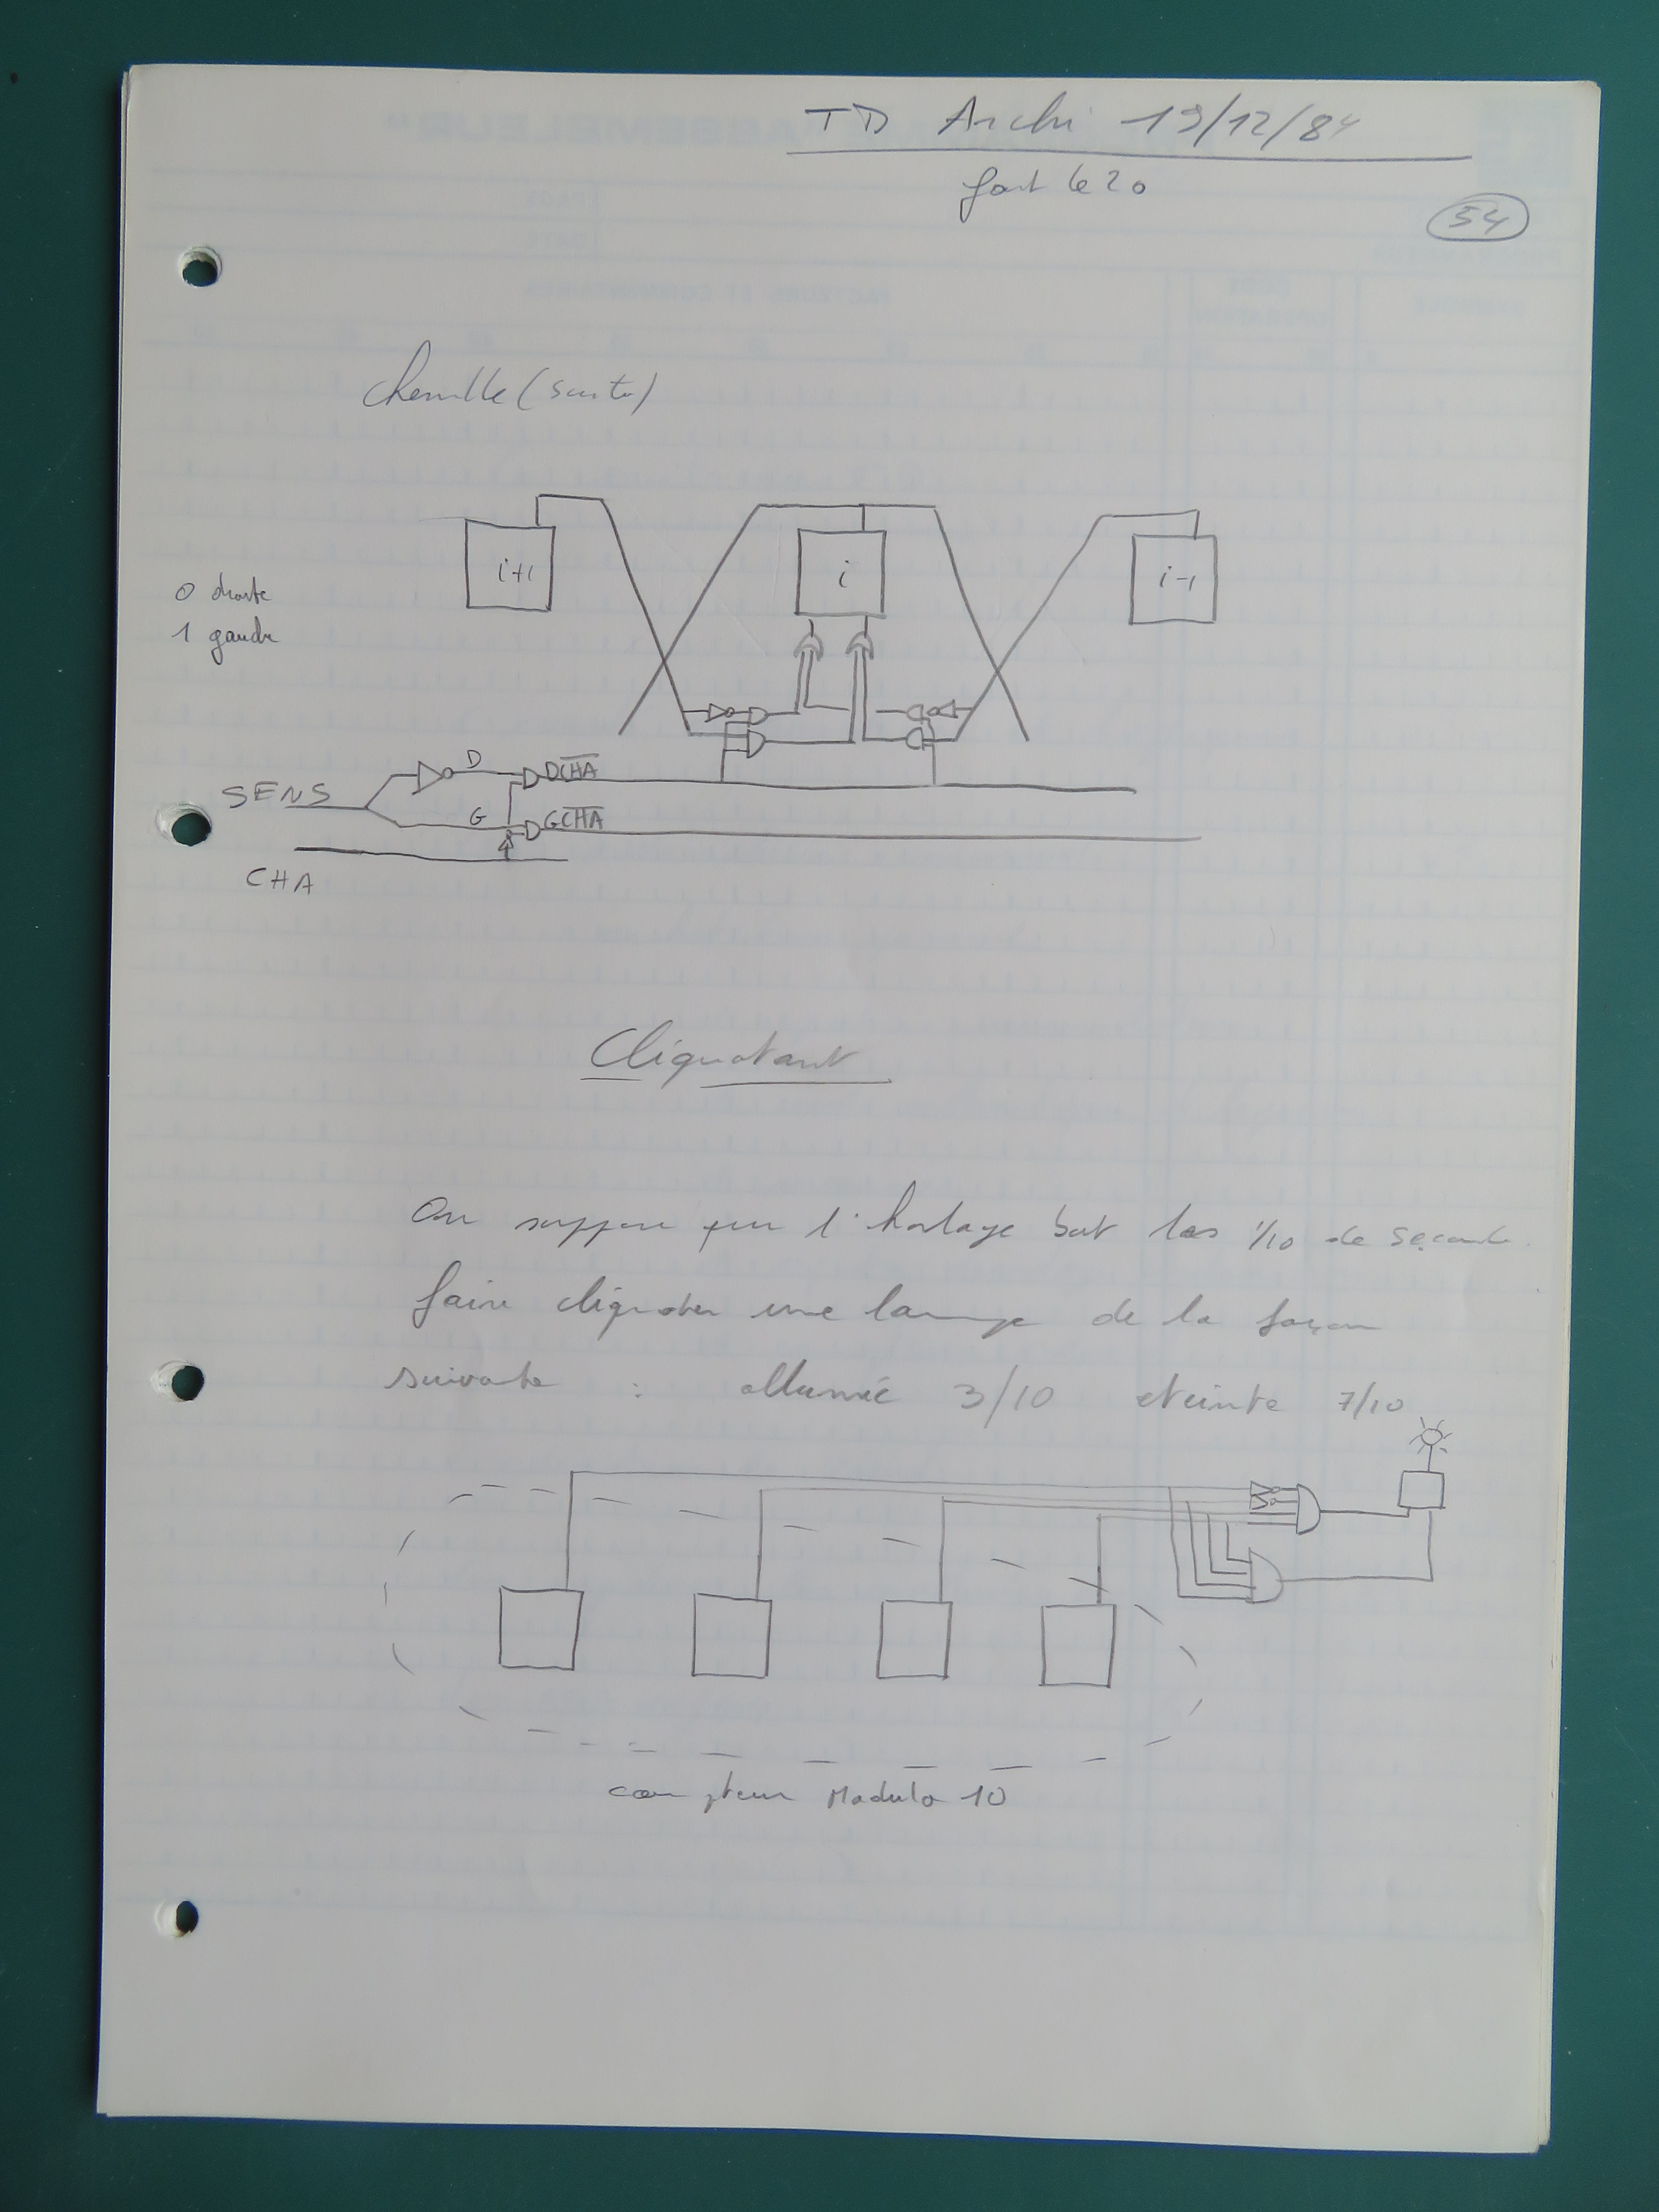 TD Archi 19/12/84
fait le 20
54
chenille (suite)
i+1
i
i-1
0 droite
1 gauche
D
DCHA
SENS
G
GCHA
CHA
Cliquotant
On suppose que l'horloge bat les 1/10 de seconde
faire cliquoter une lampe de la façon
suivante : allumée 3/10 eteinte 7/10
compteur Modulo 10